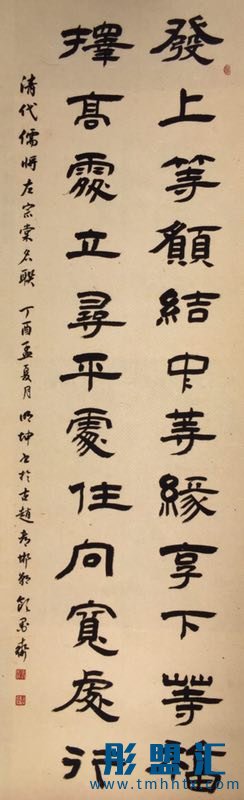 發上等願結中等緣享下等福
擇高處立尋平處住向寬處行
清代儒將左宗棠名联 丁酉孟夏月 明坤书於古趙都邯郸
彤盟汇